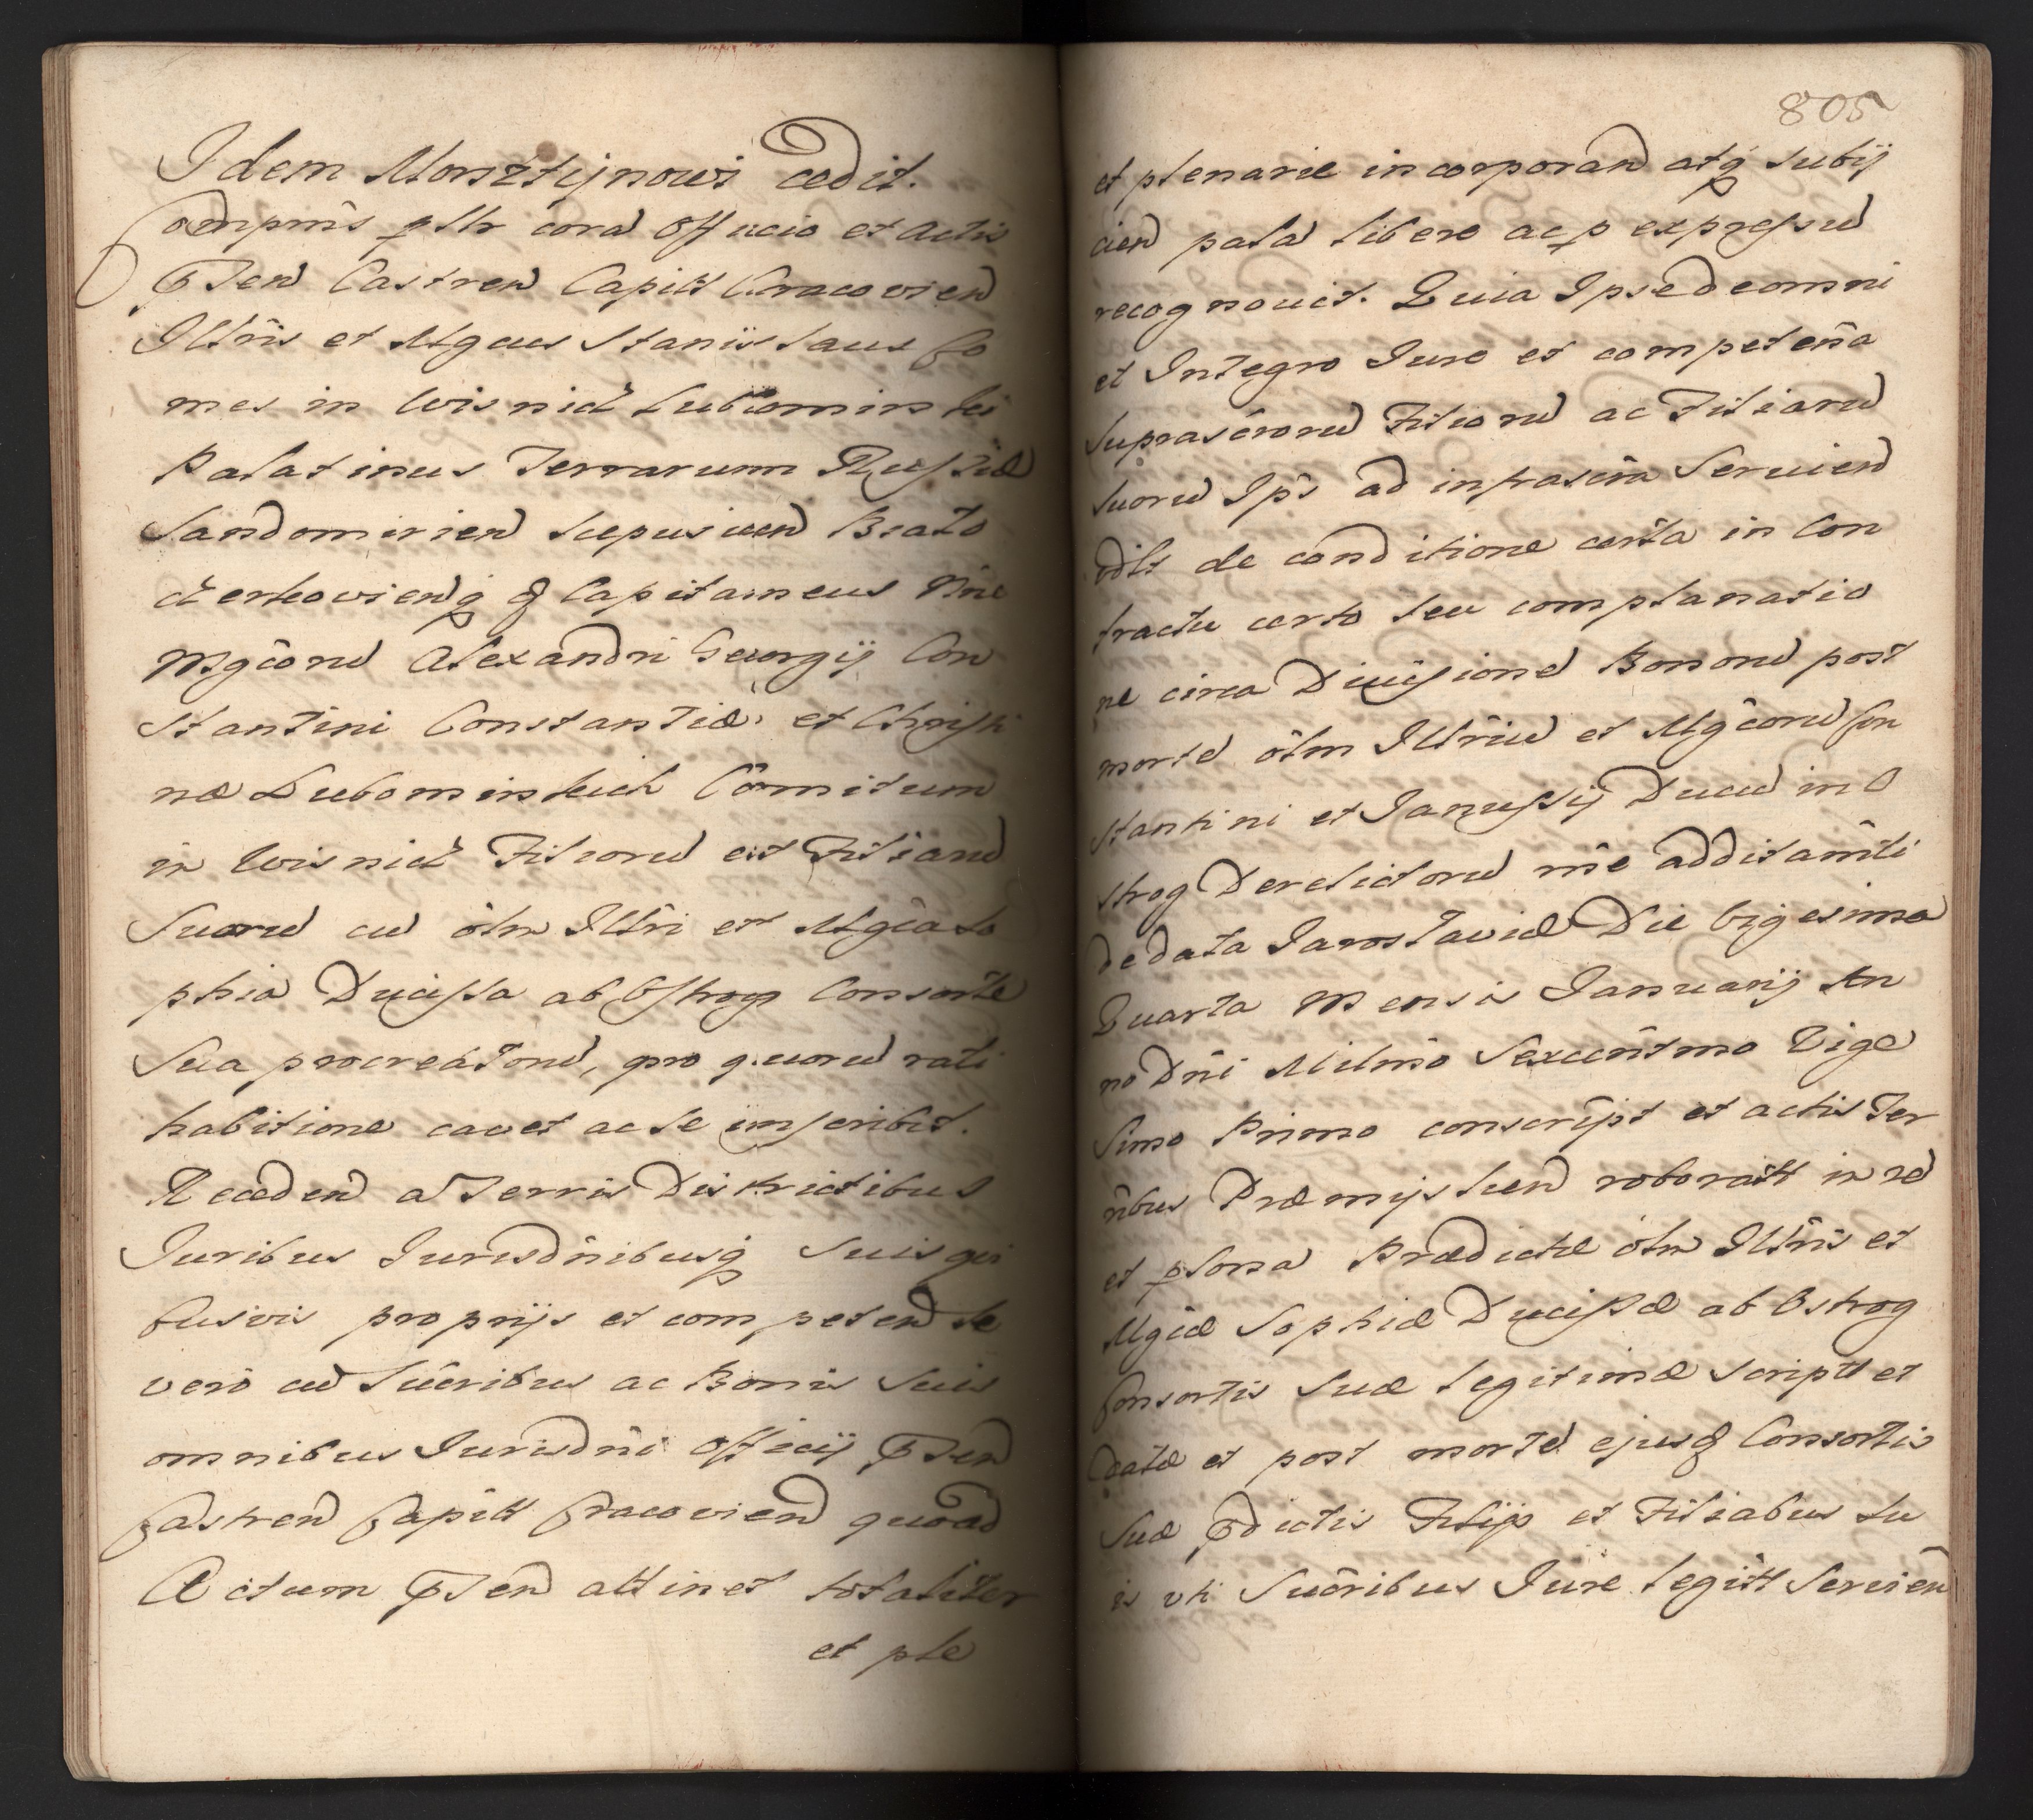 Idem Morsztijnowi cedit.
Comprñs psltr corā Officio et Actis
pñten Castren Capitt Cracovien
Illñis et Mgcus Stanislaus Co
mes in Wisnicz Lubomirski
Palatinus Terrarum Russiæ
Sandomirien Scepusien Biało
czerkovienq3 & Capitaneus Nñe
Mgcorū Alexandri Georgij Con
stantini Constantiæ et Christi
næ Lubomirskich Comitum
in Wisnicz Filiorū et Filiarū
Suorū cū olm Illri et Mgca So
phia Ducissa ab Ostrog Consorte
Sua procreatorū, pro quorū rati
habitione cavet ac se inscribit.
Receden a Terris Districtibus
Juribus Jurisdnibusq3 Suis qui
busvis proprijs et competen Se
vero cū Sucribus ac Bonis Suis
omnibus Jurisdñi Officij pñten
Castren Capitt Cracovien quoad
Actum pñten attinet totaliter
et ple
805
et plenarie incorporan atq3 Subij
cien palā libere ac p expressū
recognovit. Quia Ipse de omni
et Integro Jure et competeña
Suprascrorū Filiorū ac Filiarū
Suorū Ips ad infrascra Servien
vdlt de conditione certa in Con
tractu certo seu complanatio
ne circa Divisionē Bonorū post
mortē olm Illriū et Mgcorū Con
stantini et Janussij Ducū in O
strog Derelictorū nñe additamti
de data Jaroslaviæ Die Vigesima
Quarta Mensis Januarij An
no Dñi Milmo Sexcentmo Vige
Simo Primo conscript et actis Ter
ribus Præmyslien roboratt in rē
et psona Prædictæ olm Illris et
Mgcæ Sophiæ Ducissæ ab Ostrog
Consortis Suæ legitimæ scriptt et
datæ et post mortē ejus & Consortis
Suæ pdictis Filijs et Filiabus Su
is vti Sucribus Jure legitt Servien